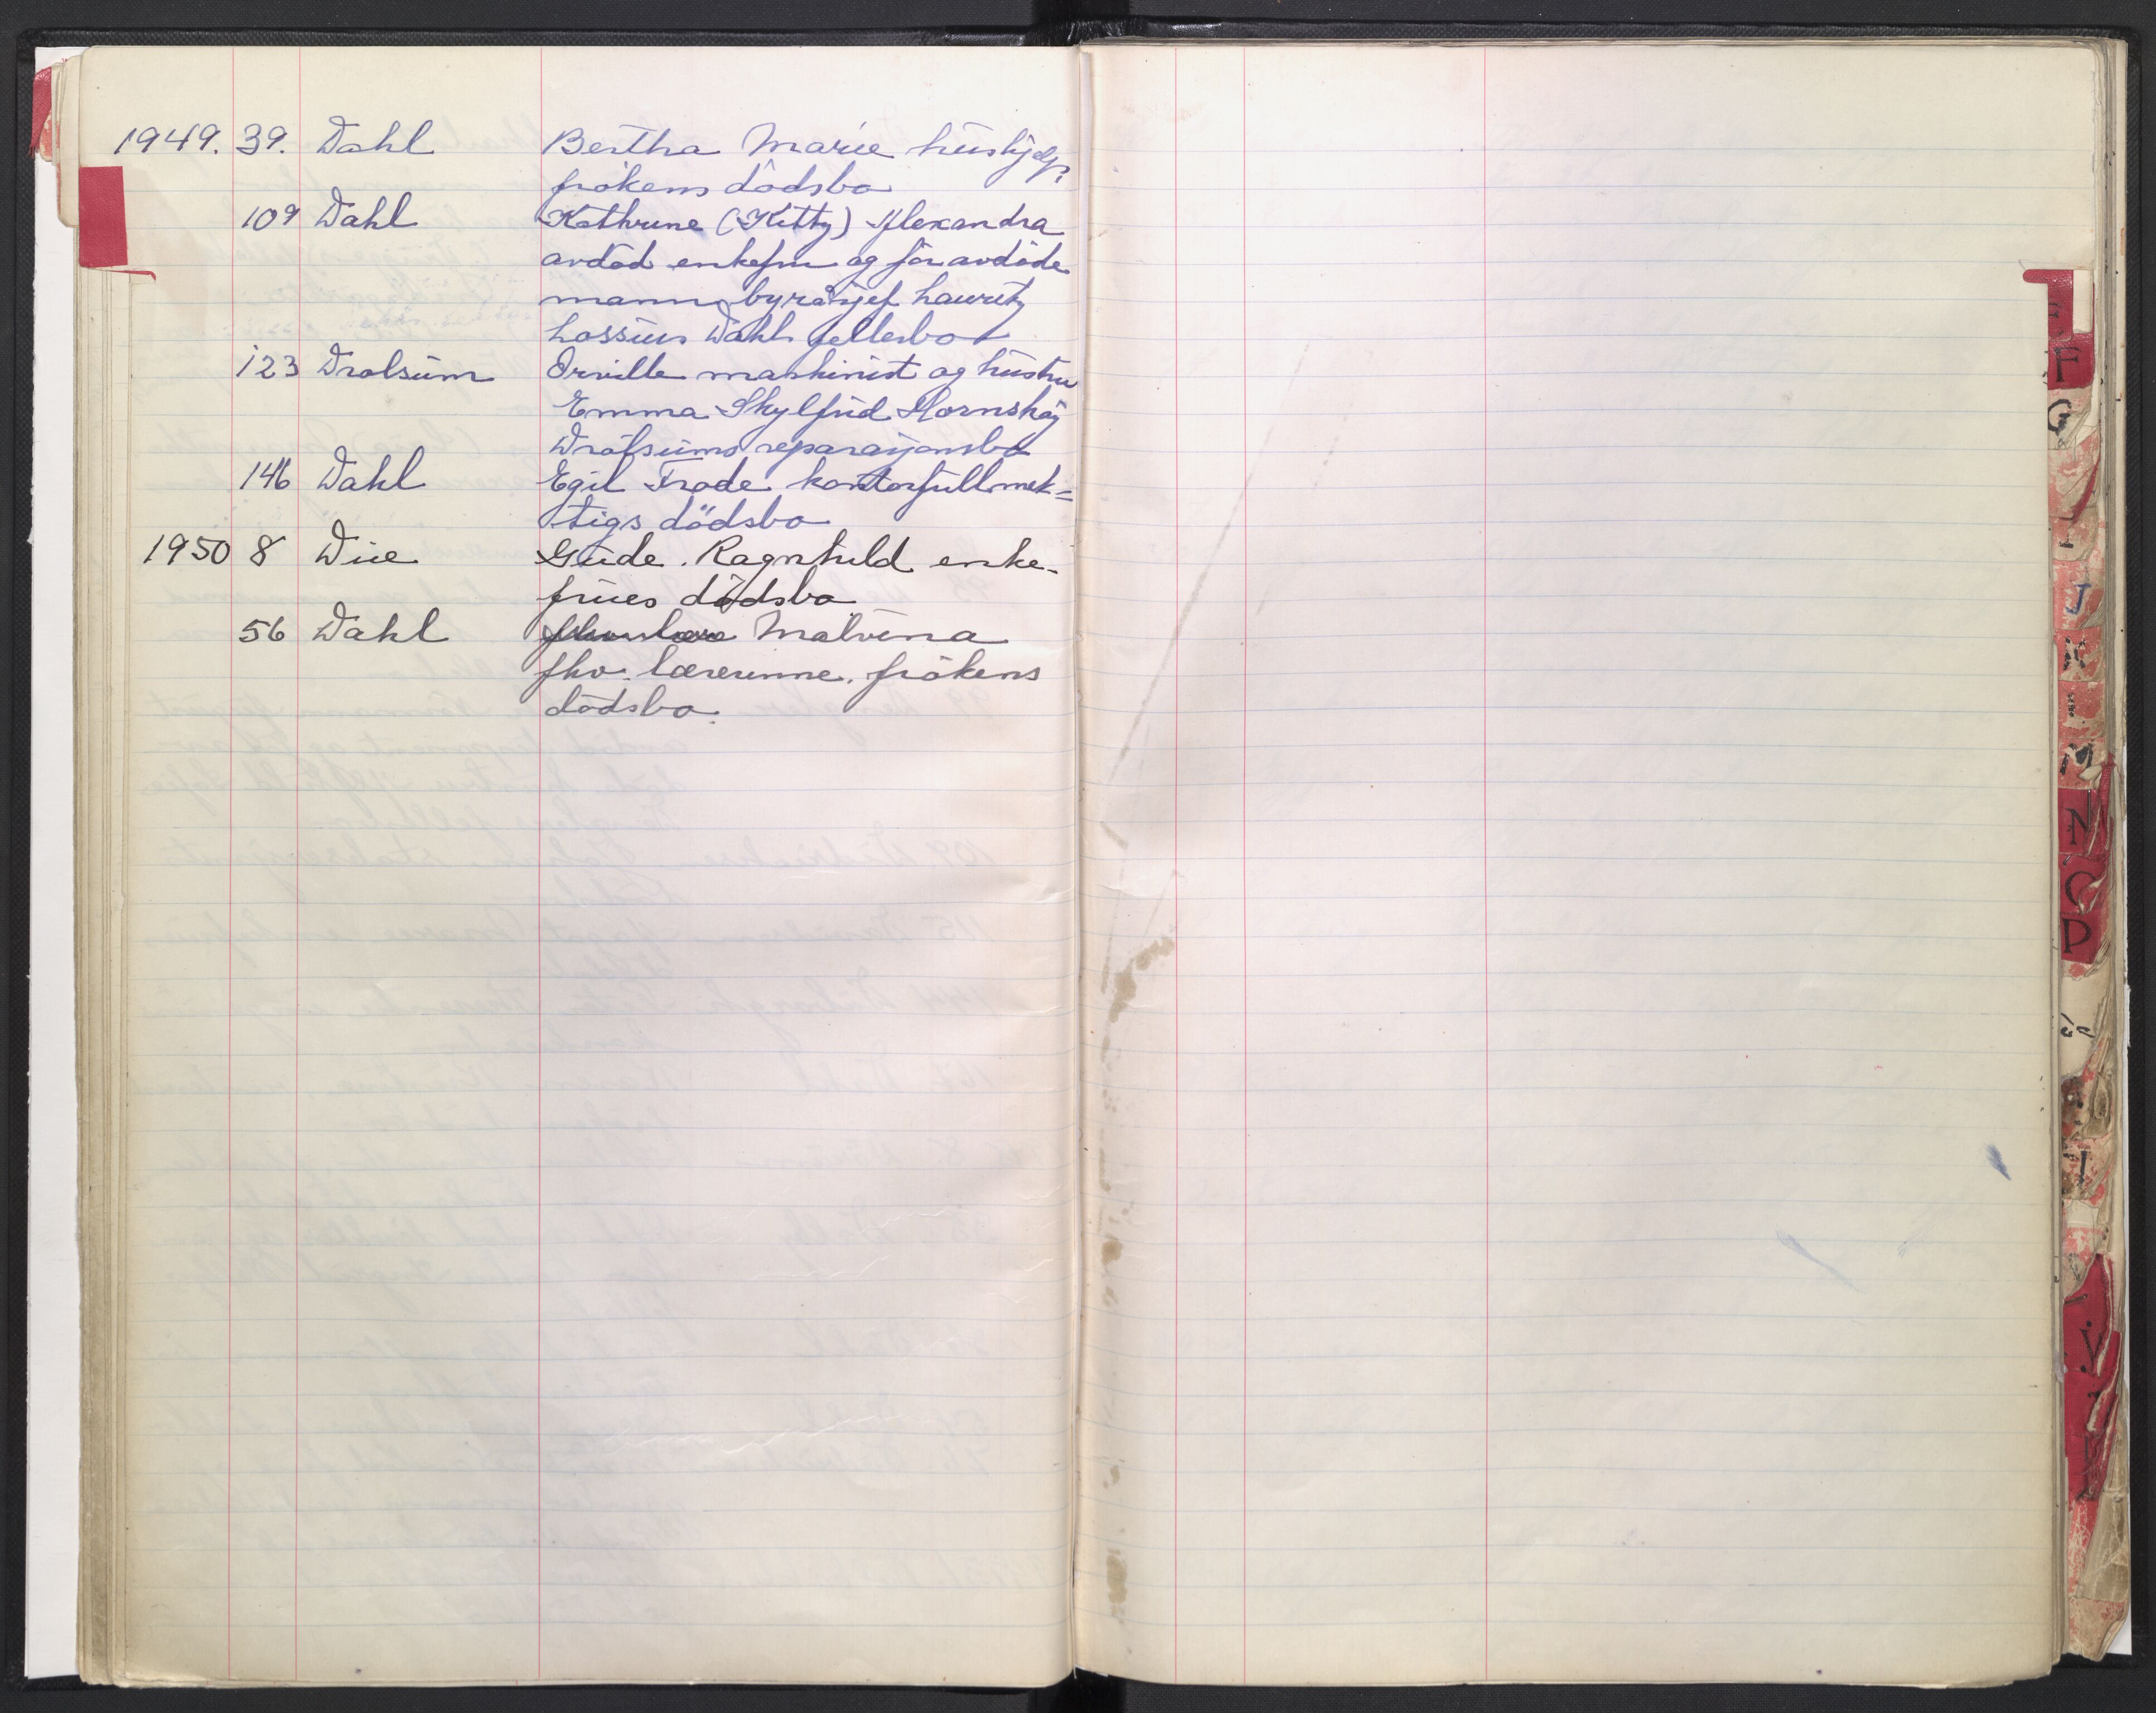 1949. 39. Dahl Bertha Marie hushjelp,
frökens dödsbo
109 Dahl Kathrine (Kitty) Alexandra
avdöd enkefru og för avdöde
mann byråsjef Lauritz
Lossius Dahls fellesbo
123 Drolsum Orville maskinist og hustru
Emma Skylfrid Hornshöj
Drolsums reparasjonsbo
146 Dahl Egil Frode kontorfullmek=
tigs dödsbo
1950 8 Due Gude. Ragnhild enke-
frues dödsbo
56 Dahl Malvina
fhv. lærerinne. frökens
dödsbo.
F
G
J
K
L
M
N
O
P
V